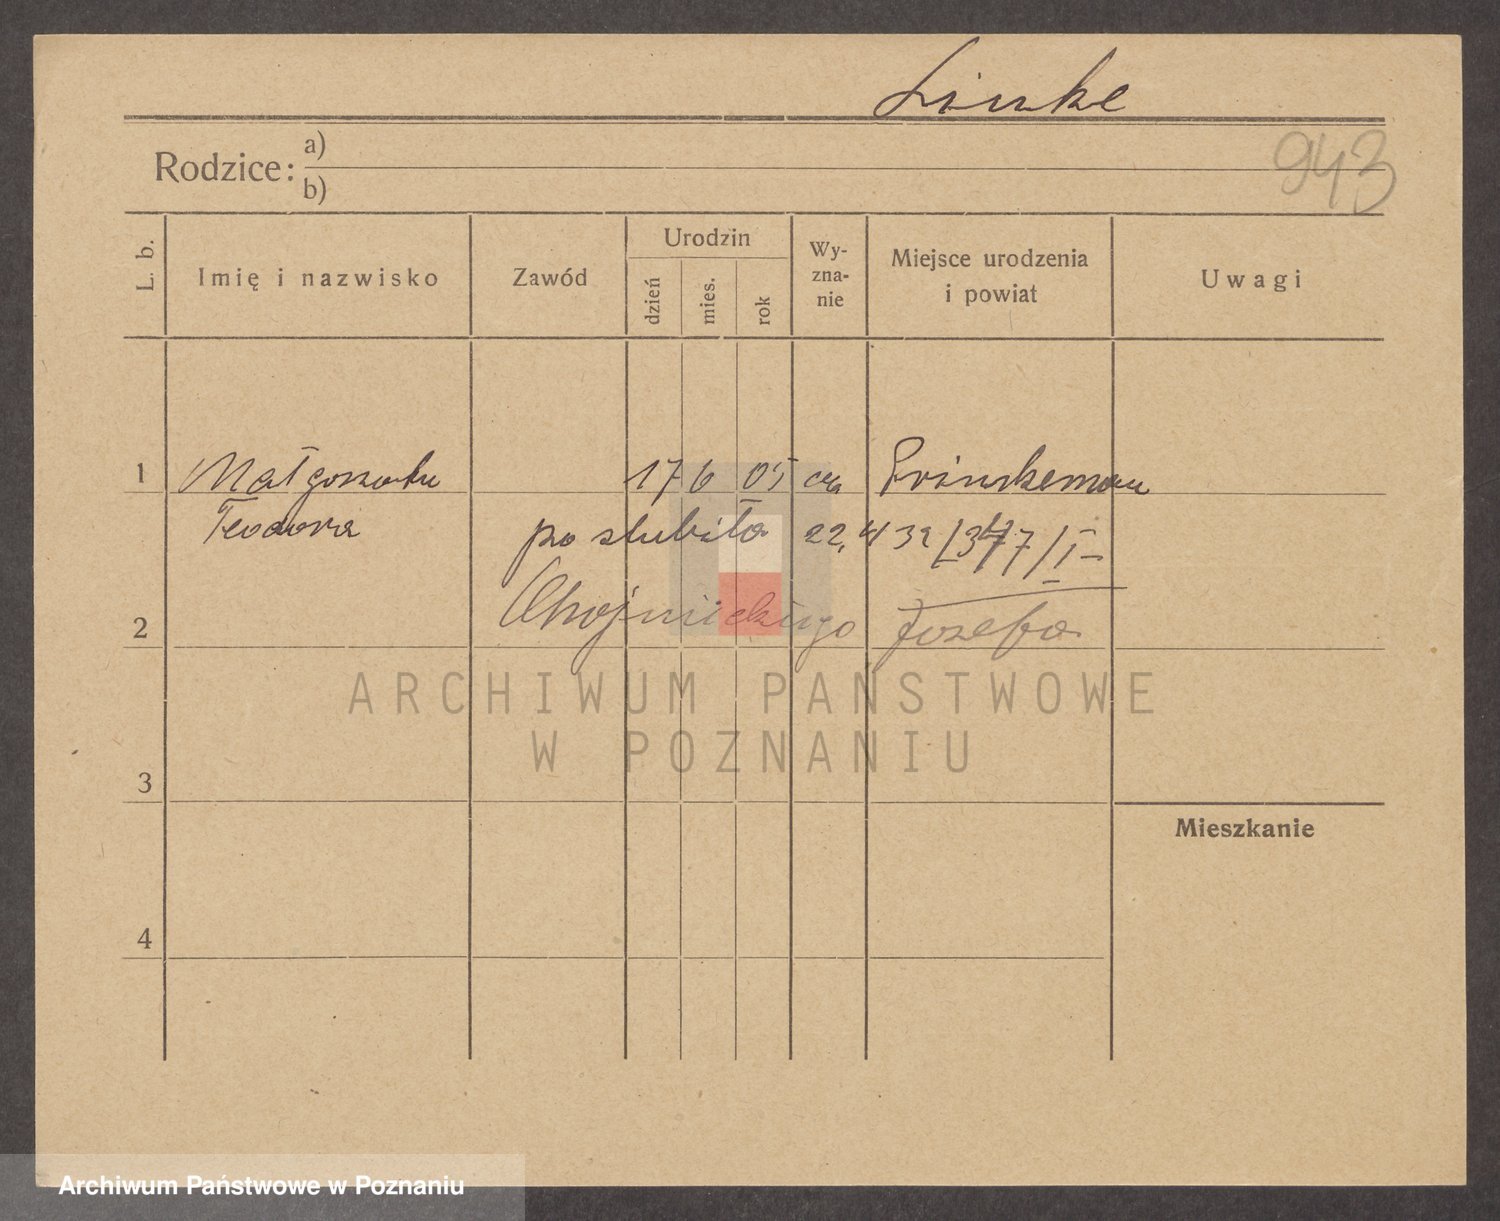 Linke
943
Rodzice: a)
b)
L. b.
Imię i nazwisko
Zawód
Urodzin
dzień
mies.
rok
Wy-
zna-
nie
Miejsce urodzenia
i powiat
Uwagi
1 Małgorzata 17 6 05
Teodora
poślubiła 22.4 32 /347/I
2 Chojnickiego Józefa
ARCHIWUM PAŃSTWOWE
W POZNANIU
3
Mieszkanie
4
Archiwum Państwowe w Poznaniu